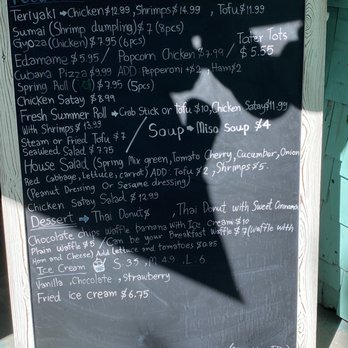 Teriyaki → Chicken $12.99, Shrimps $14.99, Tofu $11.99
Sumai (Shrimp dumpling) $7 (8pcs)
Gyoza (Chicken) $7.95 (6pcs)
Tater Tots
Edamame $5.95 / Popcorn Chicken $7.99 / $5.55
Cubana Pizza $9.99 ADD Pepperoni +$2, Ham $2
Spring Roll $7.95 (5pcs)
Chicken Satay $8.99
Fresh Summer Roll → Crab Stick or Tofu $10, Chicken Satay $11.99
With Shrimps $13.99
Steam or Fried Tofu $7
Soup → Miso Soup $4
Seaweed Salad $7.95
House Salad (Spring Mix green, Tomato Cherry, Cucumber, Onion
Red Cabbage, Lettuce, carrot) ADD: Tofu $2, Shrimps $5.
(Peanut Dressing Or Sesame dressing)
Chicken Satay Salad $12.99
Dessert → Thai Donut $, Thai Donut with Sweet Cinnamon
Chocolate chips waffle banana with Ice cream $10
Plain waffle $5 / Can be your Breakfast Waffle $7 (Waffle with
Ham and Cheese) Add Lettuce and tomatoes $0.95
Ice Cream S. 3.5, M 4.9, L. 6
Vanilla, Chocolate, Strawberry
Fried ice cream $6.75